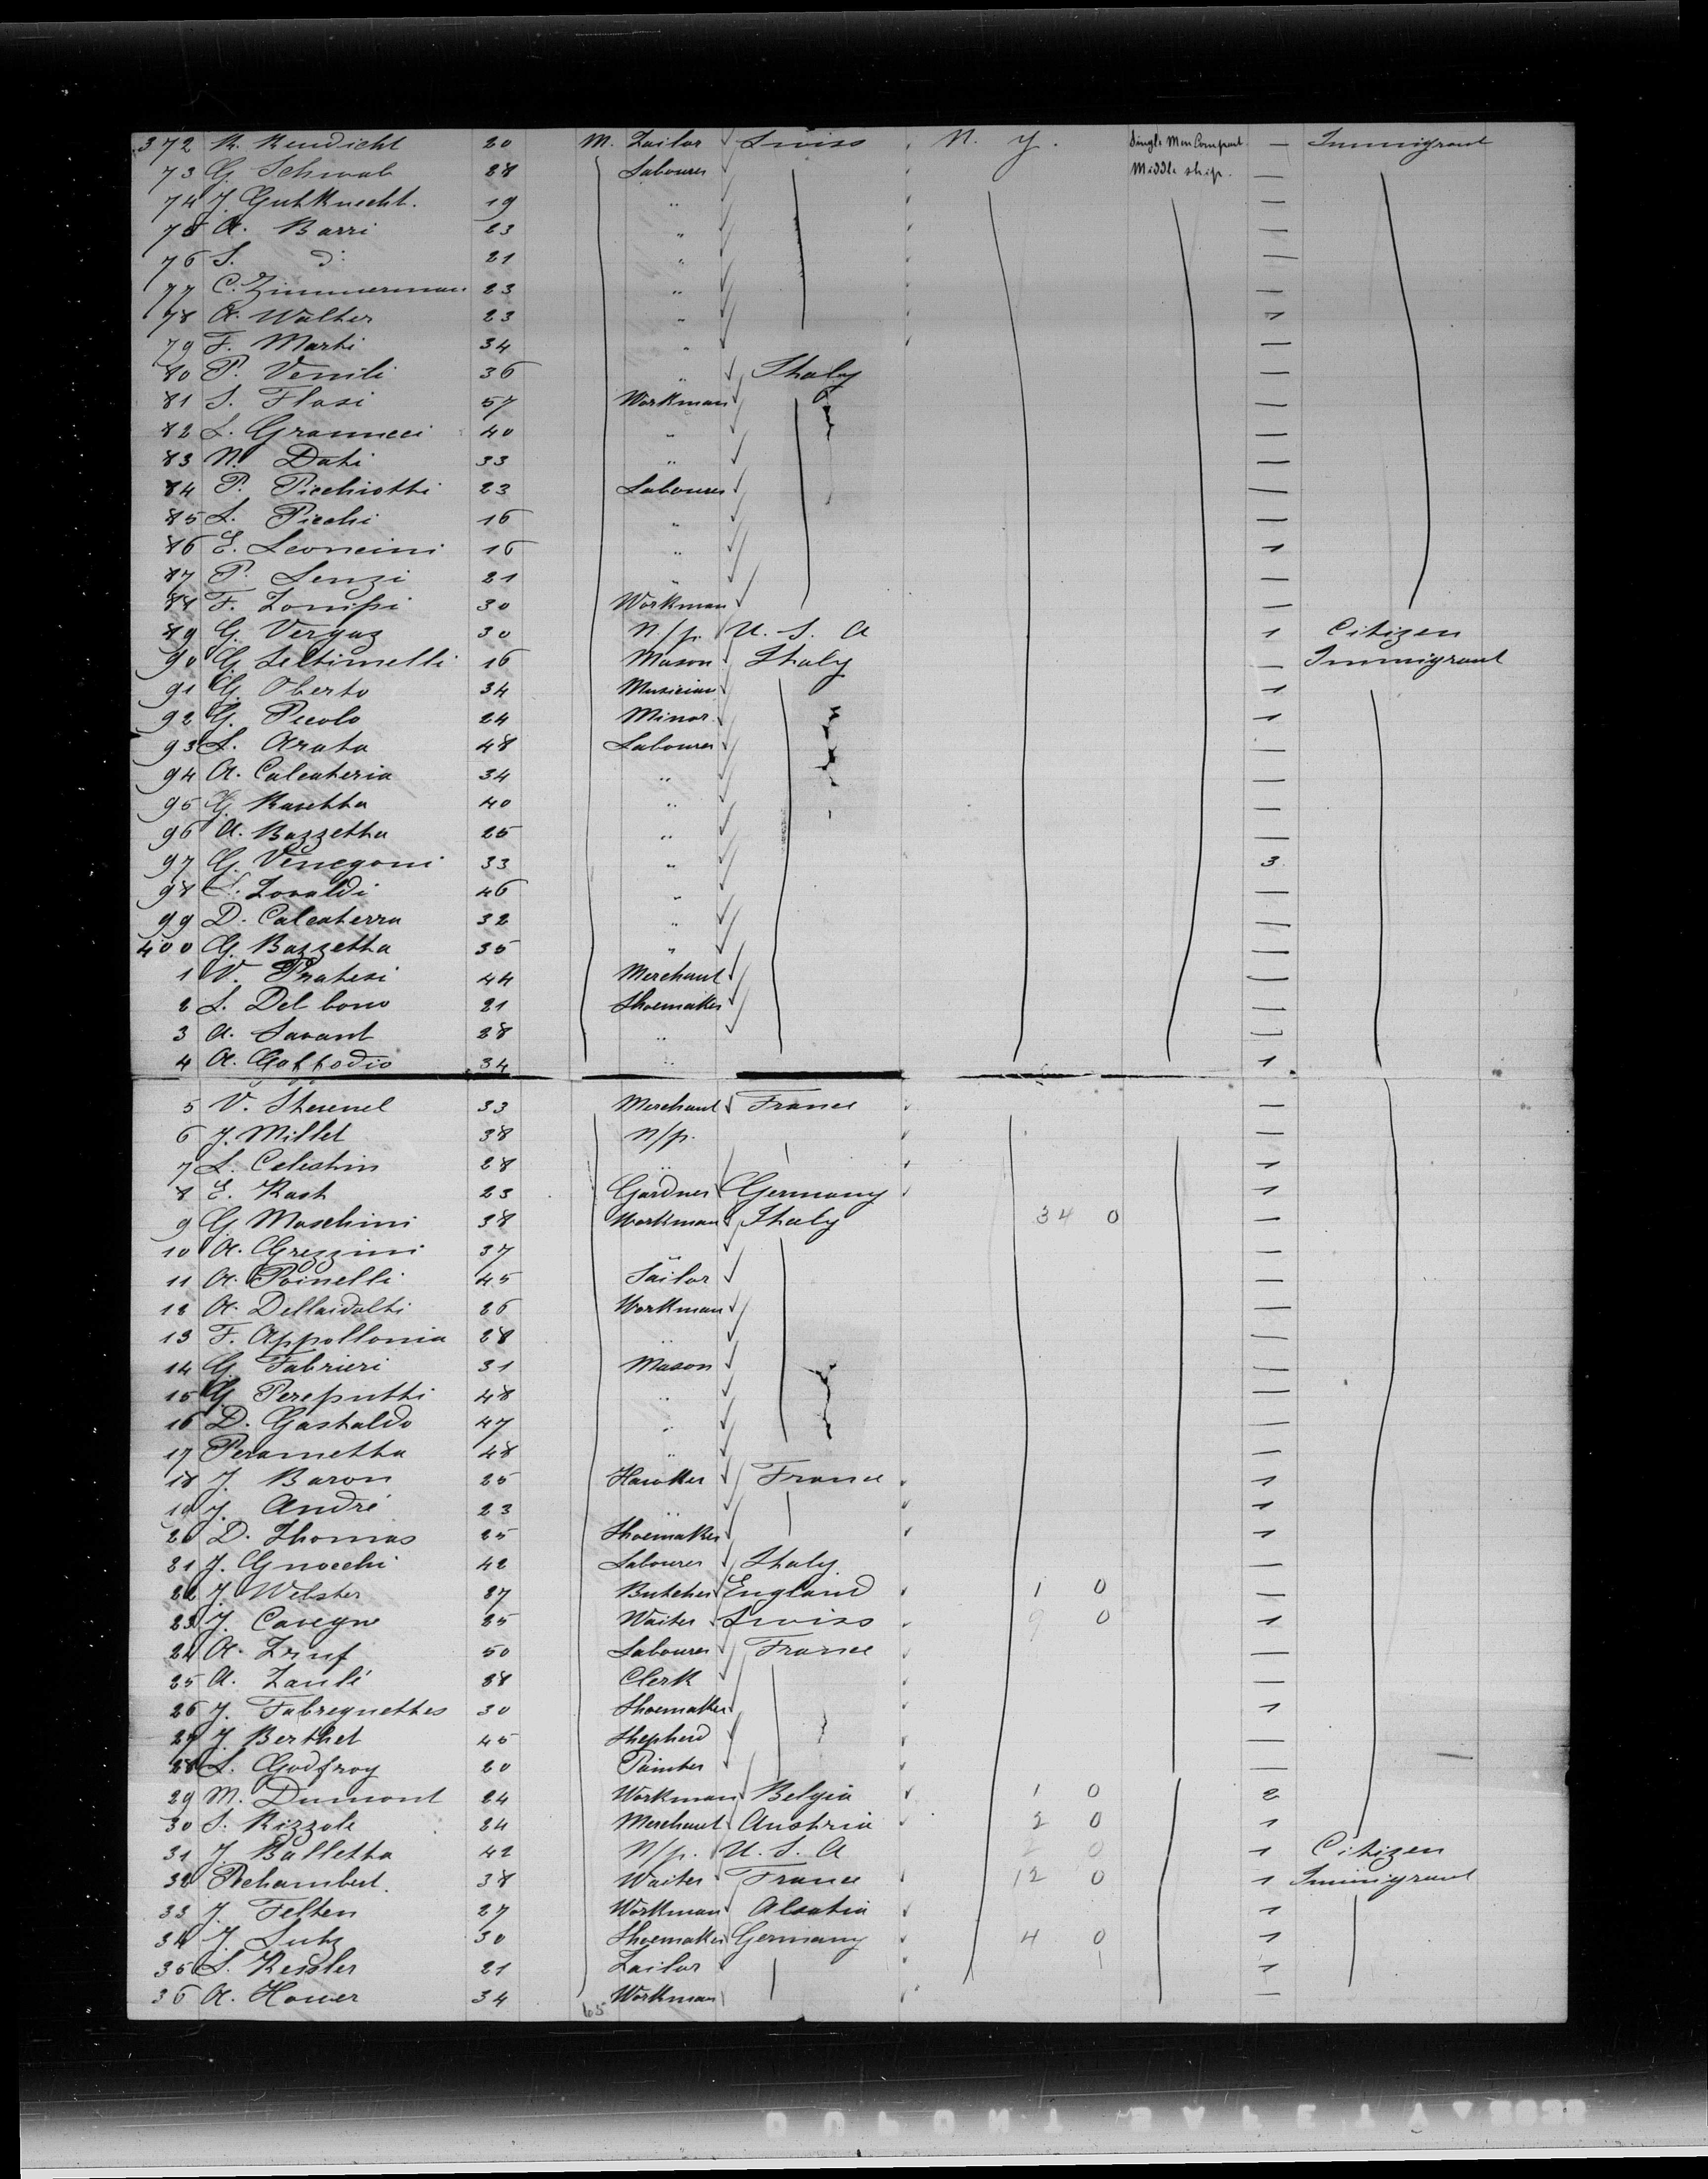 372 R. Rendicht 20 M. Tailor Swiss N. Y. Single Men Compart. — Immigrant
73 G. Schwab 28 Labourer Middle ship. —
74 J. Gutknecht. 19 " —
75 A. Barri 23 " —
76 S. do 21 " —
77 C. Zimmerman 23 " —
78 A. Walther 23 " 1
79 F. Marti 34 " —
80 P. Venili 36 " Italy —
81 S. Flosi 57 Workman —
82 L. Grannucci 40 " —
83 N. Dati 33 " —
84 P. Picchiotti 23 Labourer —
85 L. Picchi 16 " —
86 E. Leoncini 16 " 1
87 P. Lenzi 21 " —
88 F. 30 Workman —
89 G. Vergaz 30 n/p. U. S. A 1 Citizen
90 G. Settimelli 16 Mason Italy — Immigrant
91 G. Oberto 34 Musician 1
92 G. Picolo 24 Minor. 1
93 L. Arata 48 Labourer —
94 A. Calcateria 34 " —
95 G. Rasetta 40 " —
96 A. Bazzetta 25 " —
97 G. Venegoni 33 " 3
98 46 " —
99 D. Calcaterra 32 " —
400 G. Bazzetta 35 " —
1 V. Pratesi 44 Merchant —
2 L. Del bono 21 Shoemaker —
3 A. Savant 28 " —
4 A. 34 " 1
5 V. 33 Merchant France —
6 J. Millet 38 n/p. —
7 L. Celestin 28 " 1
8 E. Rast 23 Gardner Germany 1
9 G. Moschini 38 Workman Italy 34 0 —
10 A. Grezzini 37 " —
11 A. Poinelli 45 Sailor —
12 A. Dellaidalti 26 Workman —
13 F. Appollonia 28 " —
14 G. Fabrieri 31 Mason —
15 G. Pereputti 48 " —
16 D. Gastaldo 47 " —
17 Perametta 48 " —
18 J. Baron 25 Hawker France 1
19 J. André 23 " 1
20 D. Thomas 25 Shoemaker 1
21 J. Gnocchi 42 Labourer Italy —
22 J. Webster 27 Butcher England 1 0 —
23 J. Cavegn 25 Waiter Swiss 9 0 1
24 A. 50 Labourer France —
25 A. 28 Clerk —
26 J. Fabregnettes 30 Shoemaker 1
27 J. Berthet 45 Shepherd —
28 L. Godfroy 20 Painter —
29 M. Dumont 24 Workman Belgia 1 0 2
30 S. Rizzoli 24 Merchant Austria 2 0 1
31 J. Balletta 42 n/p. U. S. A 2 0 1 Citizen
32 Rchambert 38 Waiter France 12 0 1 Immigrant
33 J. Felten 27 Workman Alsatia 1
34 J. Lutz 30 Shoemaker Germany 4 0 1
35 L. Kessler 21 Tailor 1 1
36 A. Hower 34 Workman —
65
DUPONT SAFETY